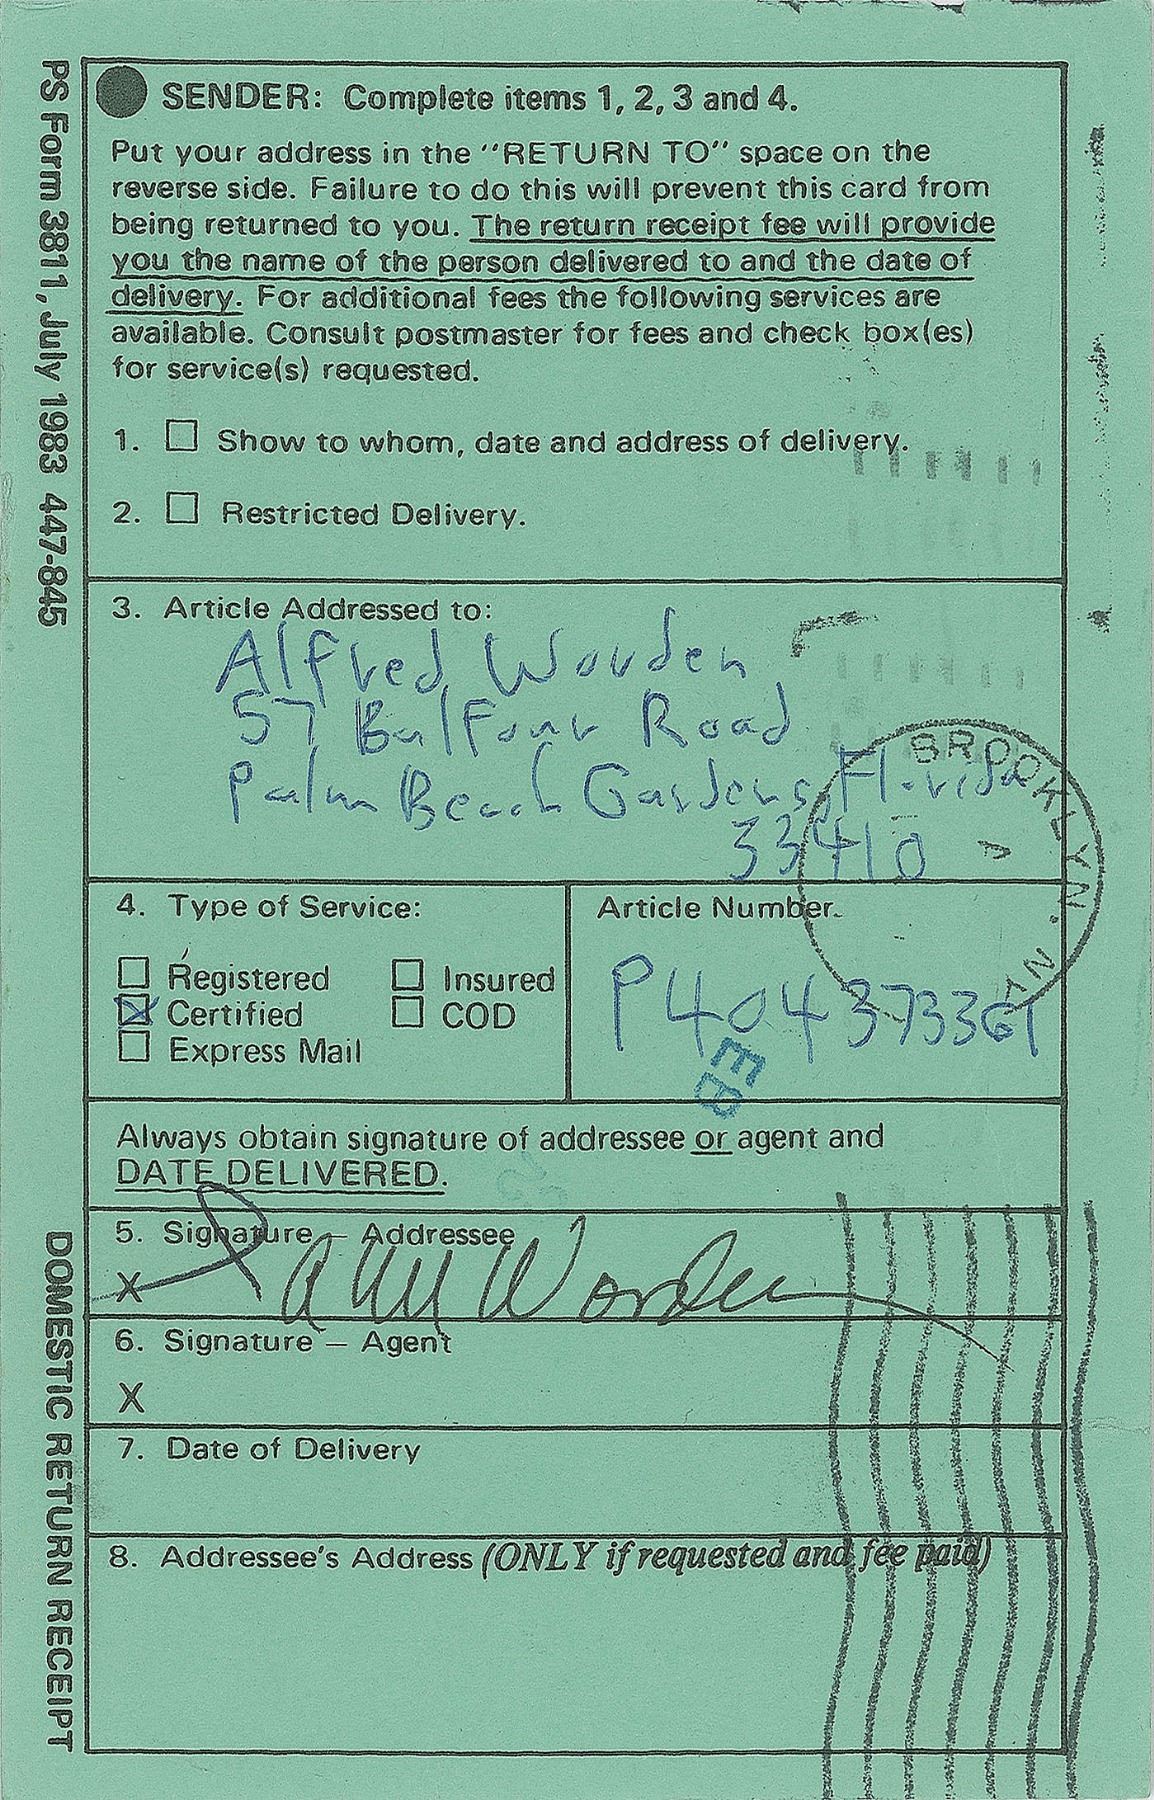 PS Form 3811, July 1983 447-845
SENDER: Complete items 1, 2, 3 and 4.
Put your address in the "RETURN TO" space on the
reverse side. Failure to do this will prevent this card from
being returned to you. The return receipt fee will provide
you the name of the person delivered to and the date of
delivery. For additional fees the following services are
available. Consult postmaster for fees and check box(es)
for service(s) requested.
1. ☐ Show to whom, date and address of delivery.
2. ☐ Restricted Delivery.
3. Article Addressed to:
Alfred Worden
57 Balfour Road
Palm Beach Gardens, Florida
33410
BROOKLYN, NY
A
4. Type of Service:
☐ Registered ☐ Insured
☒ Certified ☐ COD
☐ Express Mail
Article Number
P404373361
Always obtain signature of addressee or agent and
DATE DELIVERED.
5. Signature – Addressee
X Worden
6. Signature – Agent
X
7. Date of Delivery
8. Addressee's Address (ONLY if requested and fee paid)
DOMESTIC RETURN RECEIPT